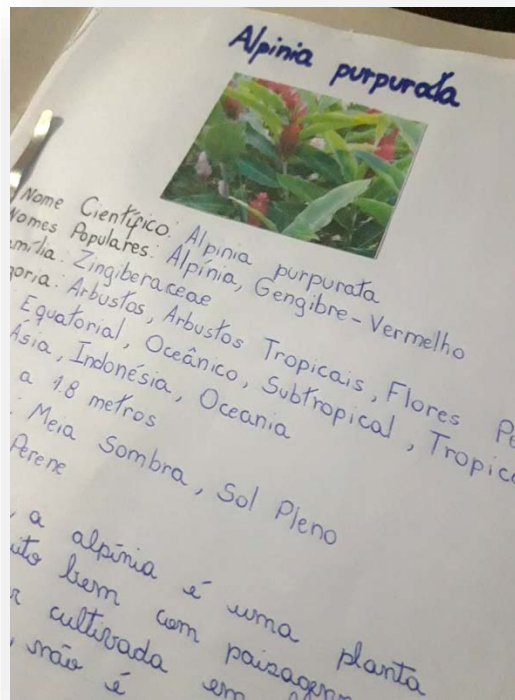 Alpinia purpurata
Nome Científico: Alpinia purpurata
Nomes Populares: Alpínia, Gengibre-Vermelho
Zingiberaceae
Arbustos, Arbustos Tropicais, Flores
Equatorial, Oceânico, Subtropical,
Ásia, Indonésia, Oceania
a 1.8 metros
Meia Sombra, Sol Pleno
Perene
a alpínia é uma planta
bem com
cultivada em
não é